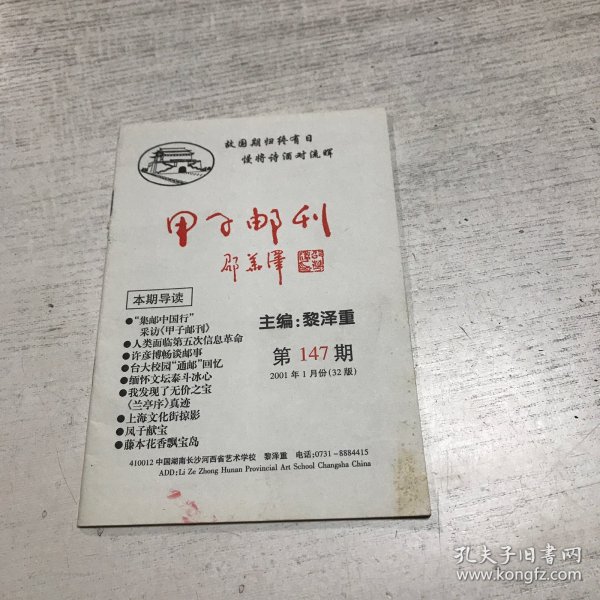 故园期归终有日
慢将诗酒对流晖
甲子邮刊
邵华泽
本期导读
●“集邮中国行”
采访《甲子邮刊》
●人类面临第五次信息革命
●许彦博畅谈邮事
●台大校园“通邮”回忆
●缅怀文坛泰斗冰心
●我发现了无价之宝
《兰亭序》真迹
●上海文化街掠影
●凤子献宝
●藤本花香飘宝岛
主编：黎泽重
第 147 期
2001 年 1 月份(32 版)
410012 中国湖南长沙河西省艺术学校 黎泽重 电话:0731-8884415
ADD:Li Ze Zhong Hunan Provincial Art School Changsha China
孔夫子旧书网
www.kongfz.com